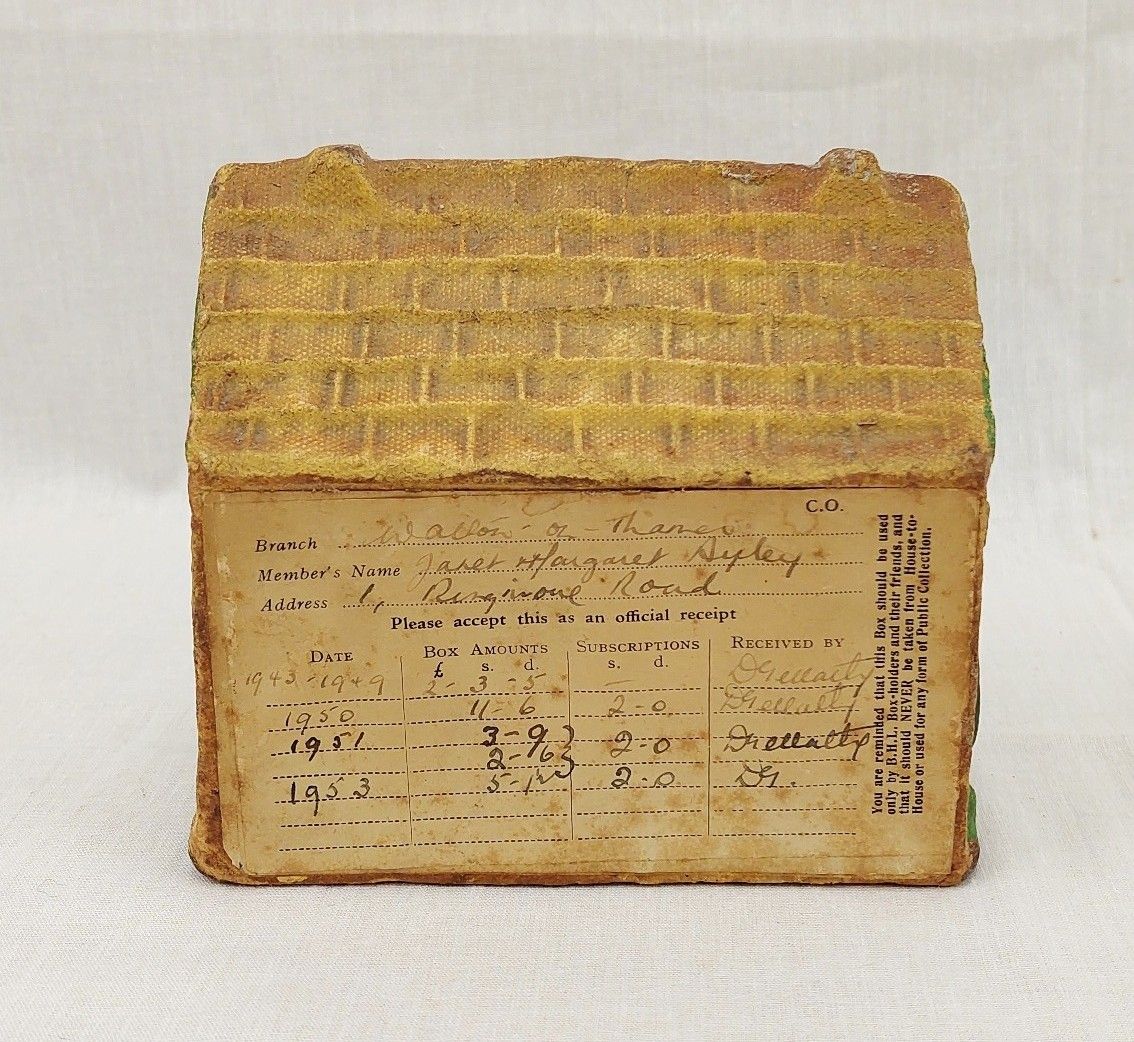 C.O.
Branch Walton-on-Thames
Member's Name Janet Margaret
Address 1, Road
Please accept this as an official receipt
DATE BOX AMOUNTS SUBSCRIPTIONS RECEIVED BY
£ s. d. s. d.
1943-1949 2-3-5 —
1950 11-6 2-0
1951 3-9 2-0
2-6
1953 2-0 DG.
You are reminded that this Box should be used
only by B.H.L. Box-holders and their friends, and
that it should NEVER be taken from House-to-
House or used for any form of Public Collection.